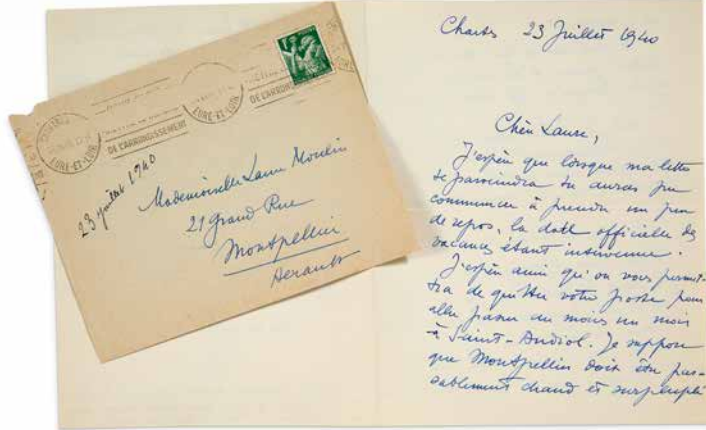 EURE-ET-LOIR
DE L'ARRONDISSEMENT
EURE-ET-LOIR
DE L'ARRONDISSEMENT
23 juillet 1940
Mademoiselle Laure Moulin
21 Grand Rue
Montpellier
Herault
Chartres 23 Juillet 1940
Chère Laure,
J'espère que lorsque ma lettre
te parviendra tu auras pu
commencer à prendre un peu
de repos, la date officielle des
vacances étant intervenue.
J'espère aussi qu'on vous permet-
tra de quitter votre poste pour
aller passer au moins un mois
à Saint-Andiol. Je suppose
que Montpellier doit être pas-
sablement chaud et surpeuplé